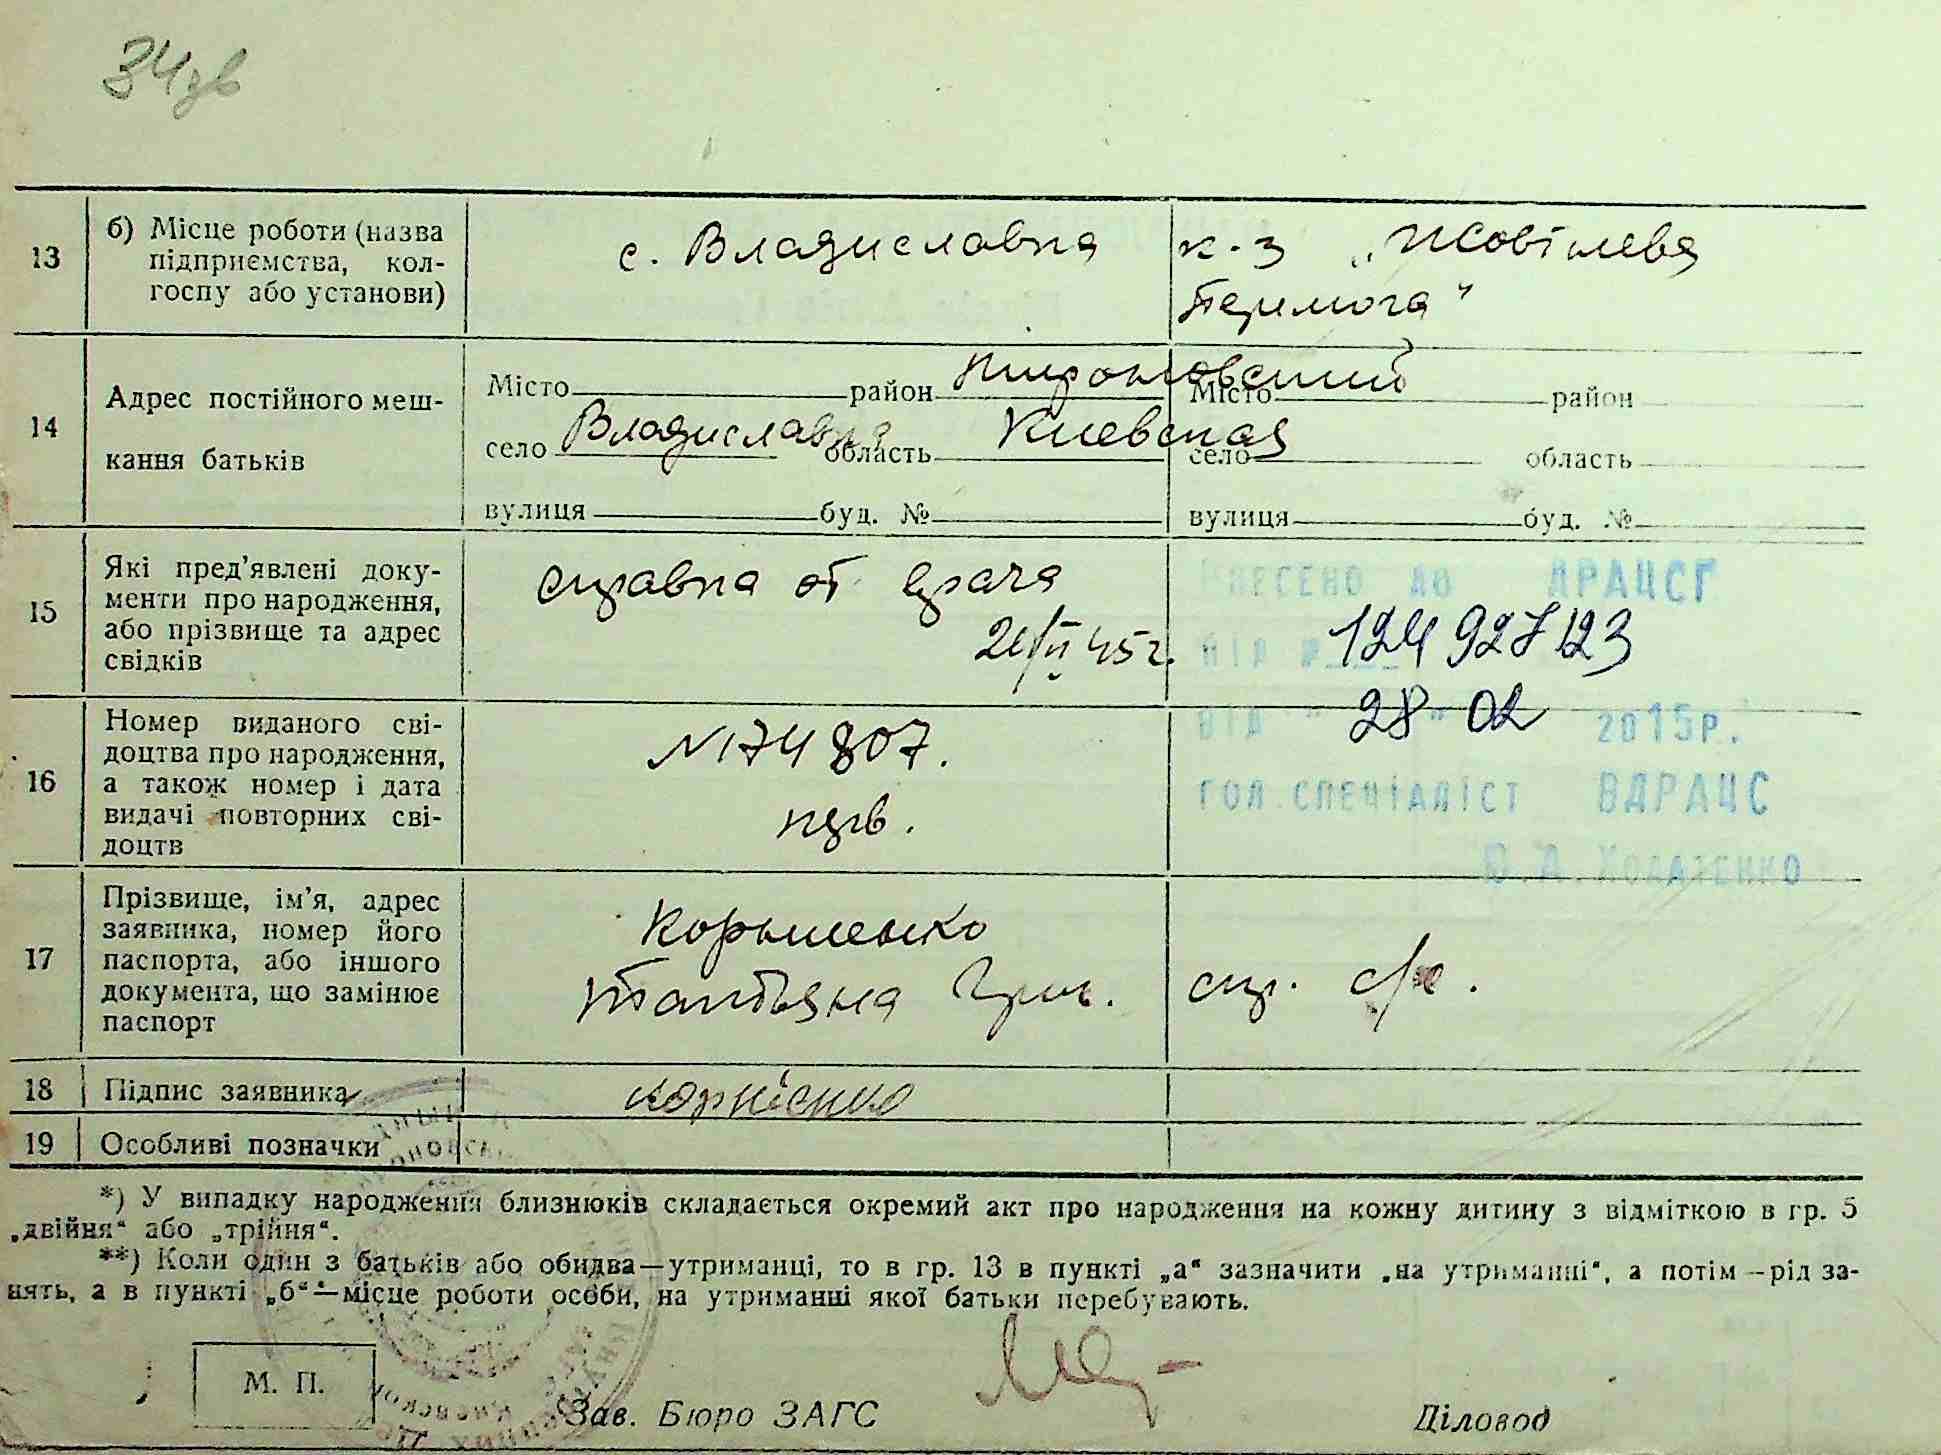 34зв
13
б) Місце роботи (назва
підприємства, кол-
госпу або установи)
с. Владиславка
к-з „Жовтнева
Перемога"
14
Адрес постійного меш-
кання батьків
Місто район Мироновский
село Владиславка область Киевская
вулиця буд. №
Місто район
село область
вулиця буд. №
15
Які пред'явлені доку-
менти про народження,
або прізвище та адрес
свідків
справка от врача
45 г.
Внесено до ДРАЦСГ
від № 124927123
від " 28 " 02 2015р.
гол.спеціаліст ВДРАЦС
16
Номер виданого сві-
доцтва про народження,
а також номер і дата
видачі повторних сві-
доцтв
№174807.
17
Прізвище, ім'я, адрес
заявника, номер його
паспорта, або іншого
документа, що замінює
паспорт
Татьяна Григ.
спр. с/с.
18
Підпис заявника
Корнієнко
19
Особливі позначки
*) У випадку народження близнюків складається окремий акт про народження на кожну дитину з відміткою в гр. 5
„двійня“ або „трійня“.
**) Коли один з батьків або обидва—утриманці, то в гр. 13 в пункті „а“ зазначити „на утриманні“, а потім—рід за-
нять, а в пункті „б“—місце роботи особи, на утриманні якої батьки перебувають.
М. П.
Зав. Бюро ЗАГС
Діловод